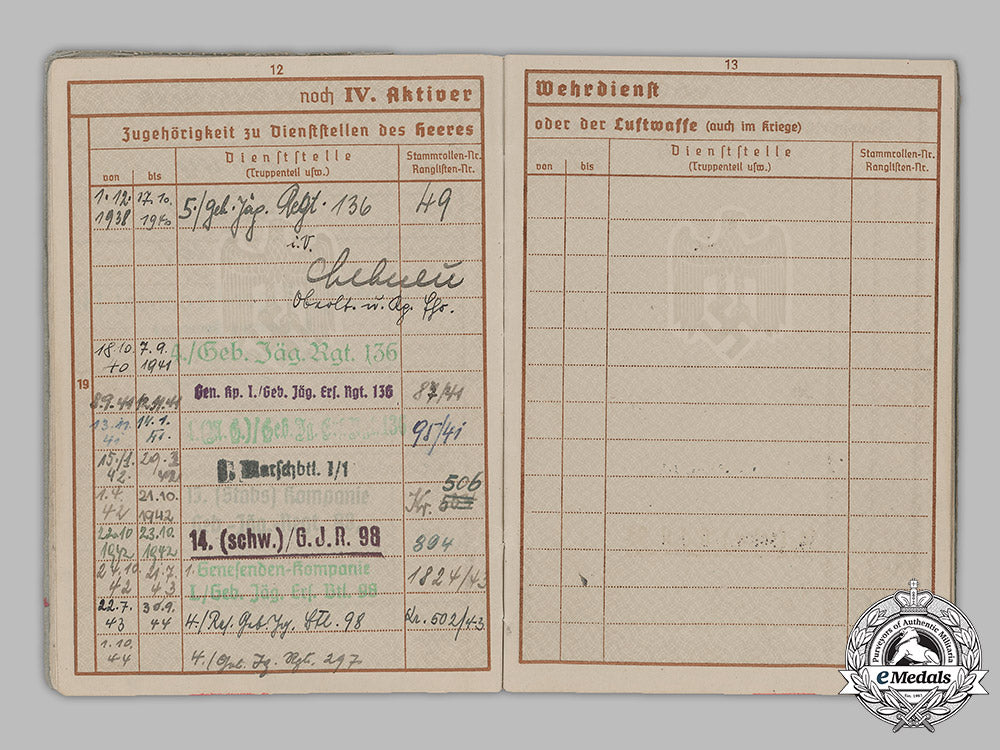 12
noch IV. Aktiver
Zugehörigkeit zu Dienststellen des Heeres
von bis Dienststelle (Truppenteil usw.) Stammrollen-Nr. Ranglisten-Nr.
1.12. 1938 17.10. 1940 5./Geb. Jäg. Regt. 136 49
i.V.
Oberlt. u. Kp. Fhr.
18.10. 40 7.9. 1941 4./Geb. Jäg. Rgt. 136
19
8.9.41 Gen. Kp. I./Geb. Jäg. Ers. Rgt. 136 87/41
13.11. 41 14.1. 136 95/41
15.1. 42. 29.3 42 Marschbtl. I/1
1.4. 42 21.10. 1942 (Stabs) Kompanie Kr. 506
22.10 1942 23.10. 1942 14. (schw.)/G.J.R. 98 394
24.10 42 21.7. 43 1. Genesenden-Kompanie 1824/43
I./Geb. Jäg. Ers. Btl. 98
22.7. 43 30.9. 44 4./Res. Geb. Jg. Btl. 98 Kr. 502/43
1.10. 44 4./Geb. Jg. Rgt. 297
13
Wehrdienst
oder der Luftwaffe (auch im Kriege)
von bis Dienststelle (Truppenteil usw.) Stammrollen-Nr. Ranglisten-Nr.
Purveyors of Authentic Militaria
eMedals
Est. 1967